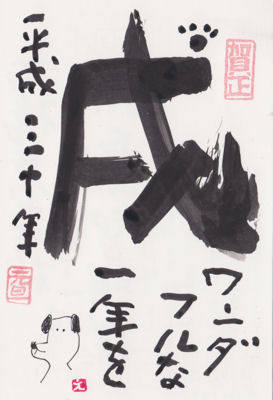 賀正
戌
平成三十年
元旦
ワンダ
フルな
一年を